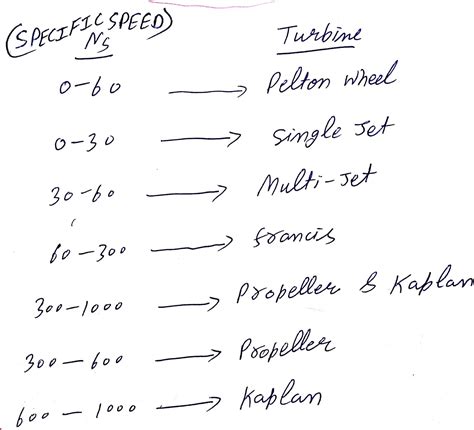 (SPECIFIC SPEED) Turbine
Ns
0-60 → Pelton wheel
0-30 → Single Jet
30-60 → Multi-Jet
60-300 → Francis
300-1000 → Propeller & Kaplan
300-600 → Propeller
600-1000 → Kaplan